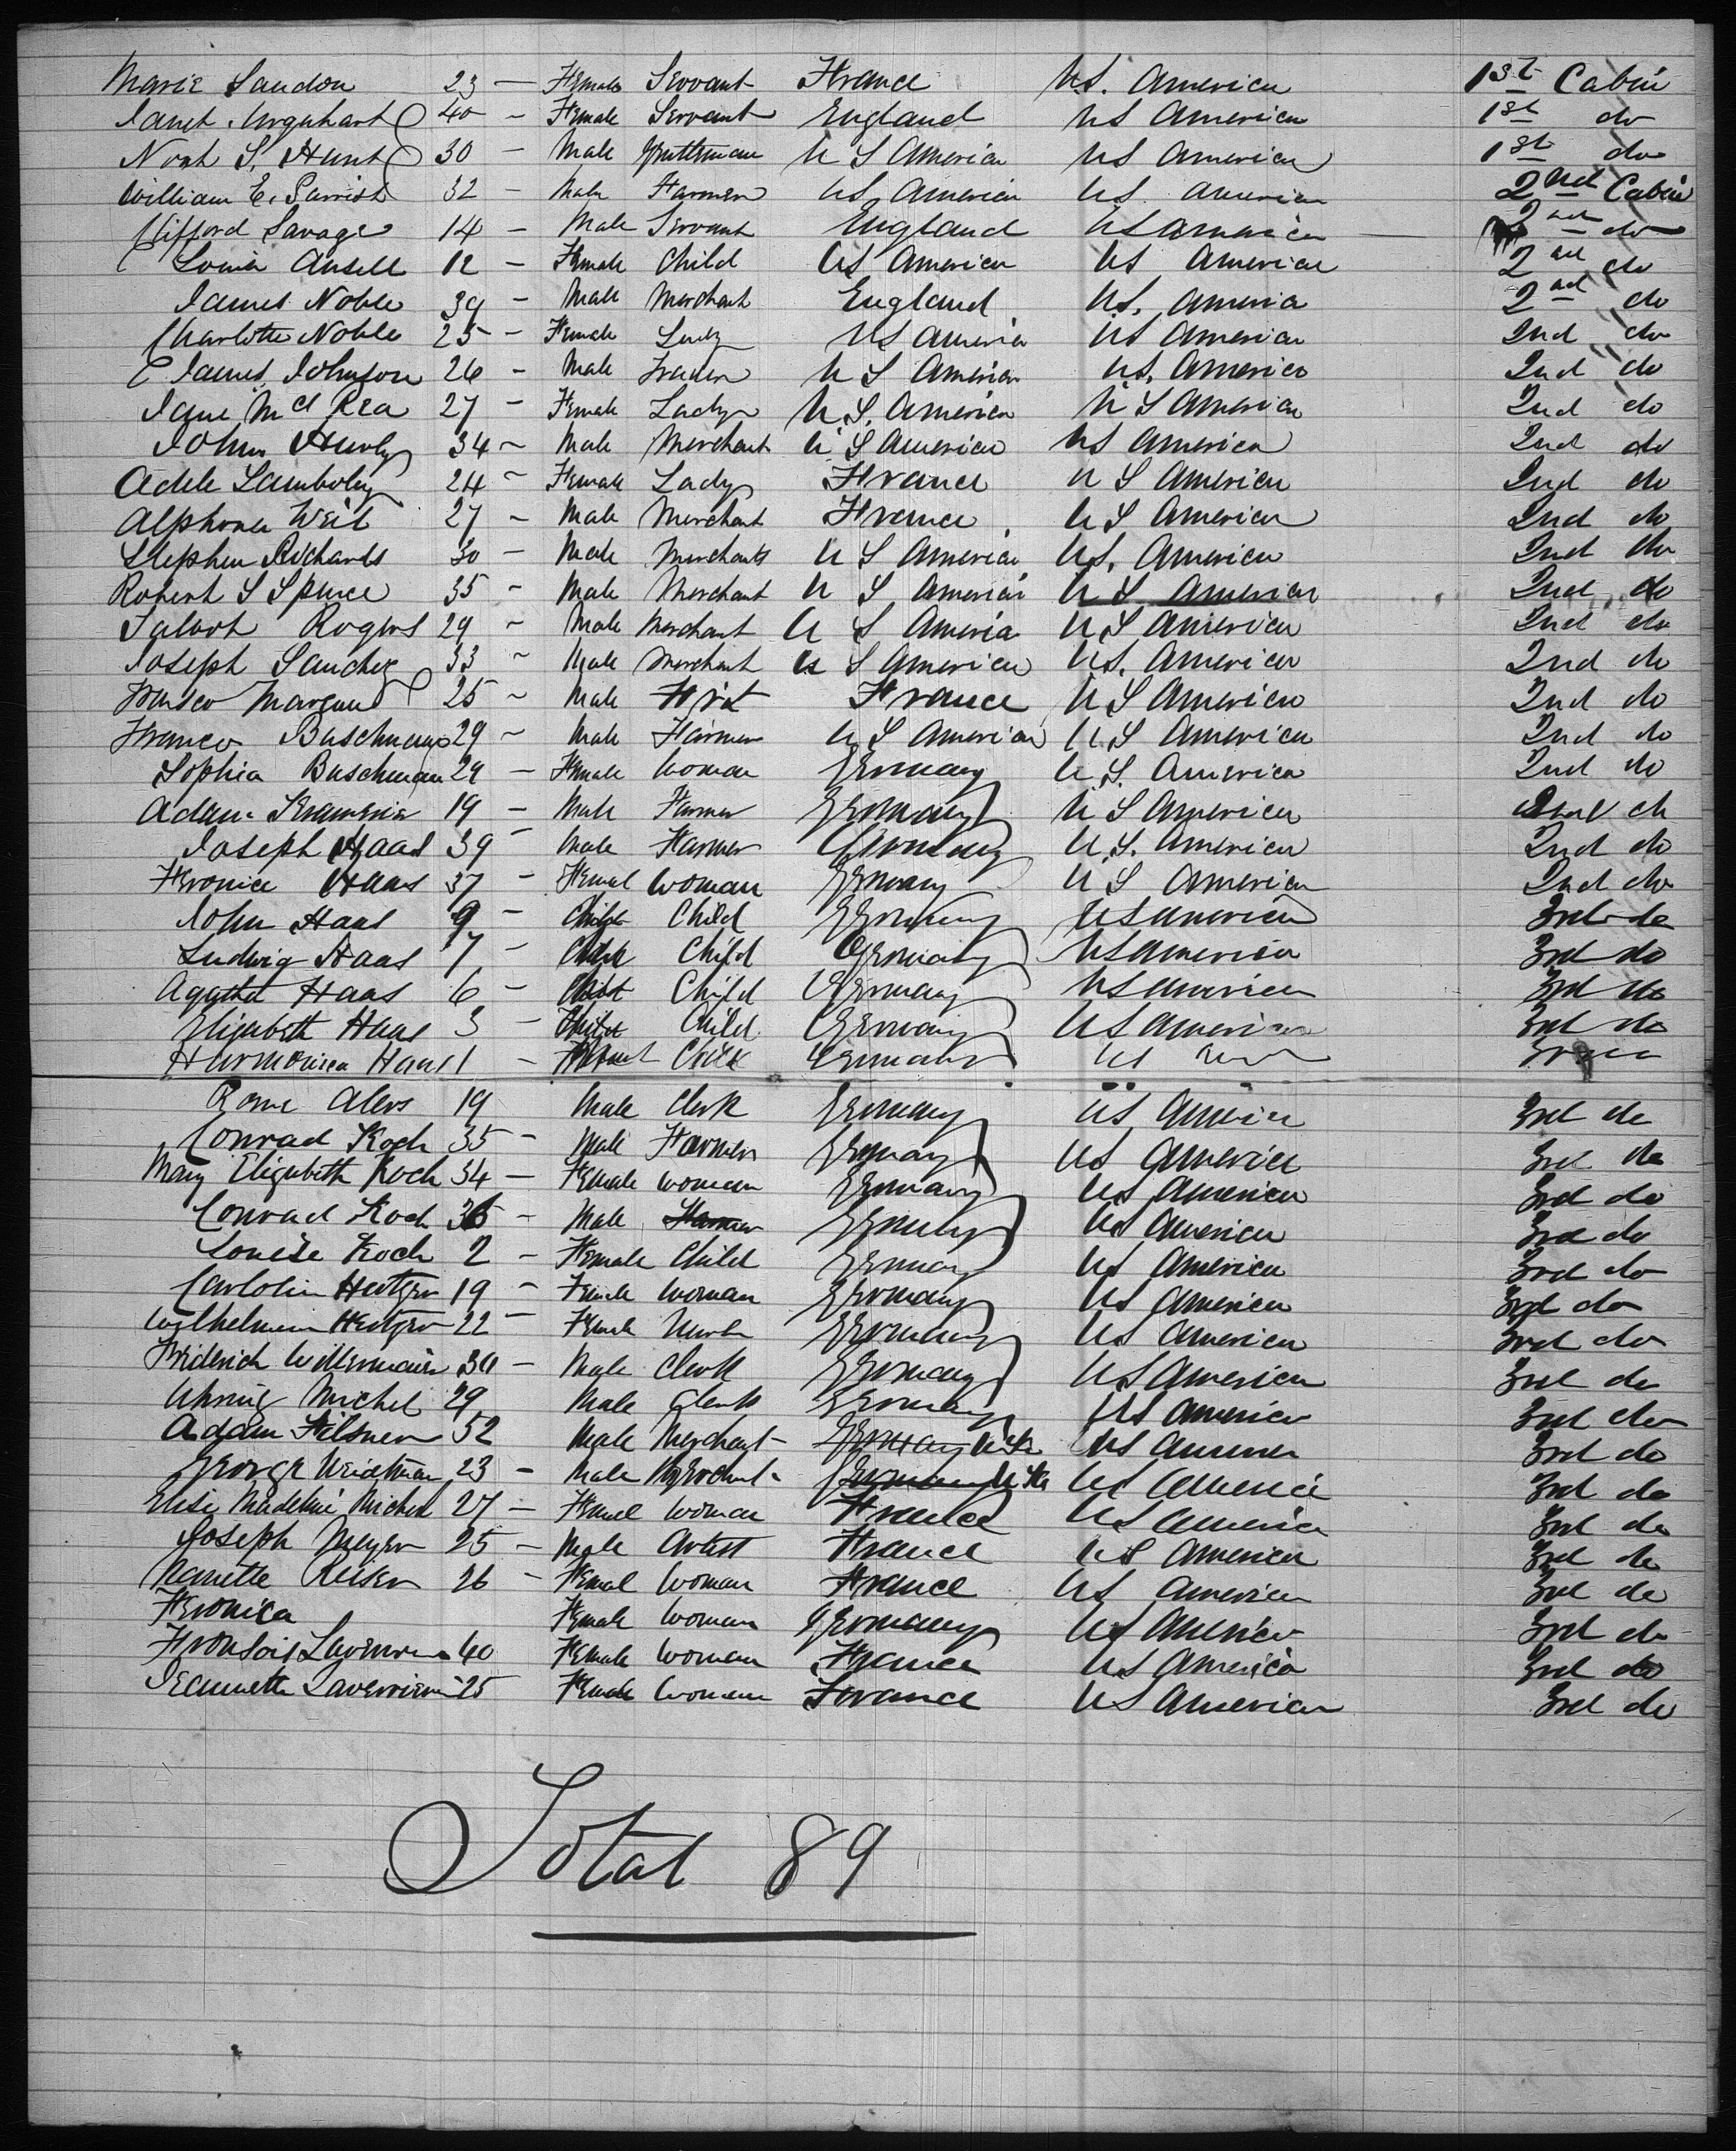 Marie Landon 23 — Female Servant France U.S. America 1st Cabin
Janet Urquhart 40 — Female Servant England US America 1st do
Noah S. Hunt 30 — Male Gentleman U S America US America 1st do
William E. Parrish 32 — Male Farmer US America US America 2nd Cabin
Clifford Savage 14 — Male Servant England US America 2nd do
Louisa Ansell 12 — Female Child US America US America 2nd do
James Noble 39 — Male Merchant England US. America 2nd do
Charlotte Noble 25 — Female Lady US America US America 2nd do
E James Johnson 26 — Male U S America US. America 2nd do
Jane McRea 27 — Female Lady U.S. America U S America 2nd do
John Hurley 34 — Male Merchant U.S America US America 2nd do
Adele Lamboley 24 — Female Lady France U S America 2nd do
Alphonse Weil 27 — Male Merchant France U S America 2nd do
Stephen Richards 30 — Male Merchant U S America US. America 2nd do
Robert S Spence 35 — Male Merchant U S America U S America 2nd do
Rogers 29 — Male Merchant U S America U S America 2nd do
Joseph Sanchez 33 — Male Merchant U S America U.S. America 2nd do
25 — Male France U S America 2nd do
Buschman 29 — Male Farmer U S America U S America 2nd do
Sophia Buschman 29 — Female Woman Germany U.S. America 2nd do
Adam 19 — Male Farmer Germany U S America 2nd do
Joseph Haas 39 — Male Farmer Germany U.S. America 2nd do
Feronica Haas 37 — Femal Woman Germany U S America 2nd do
John Haas 9 — Child Child Germany US America 3rd do
Ludwig Haas 7 — Child Child Germany US America 3rd do
Agatha Haas 6 — Child Child Germany US America 3rd do
Elizabeth Haas 3 — Child Child Germany US America 3rd do
Haas 1 — Child Germany US
Alers 19 Male Clerk Germany US America 3rd do
Conrad Koch 35 — Male Farmer Germany US America 3rd do
Mary Elizabeth Koch 34 — Female Woman Germany US America 3rd do
Conrad Koch — Male Farmer Germany US America 3rd do
Louise Koch 2 — Female Child Germany US America 3rd do
19 — Female Woman Germany US America 3rd do
22 — Female Germany US America 3rd do
Friderich 30 — Male Clerk Germany US America 3rd do
Michel 29 Male Clerk Germany US America 3rd do
Adam Filsner 52 Male Merchant Germany US America 3rd do
George Weidtman 23 — Male Merchant Germany US America 3rd do
Elise Madeline Michel 27 — Femal Woman France US America 3rd do
Joseph Meyer 25 — Male Artist France US America 3rd do
Nanette Reiser 26 — Femal Woman France US America 3rd do
Feronica Female Woman Germany US America 3rd do
40 Female Woman France US America 3rd do
Jeannette 25 Female Woman France US America 3rd do
Total 89